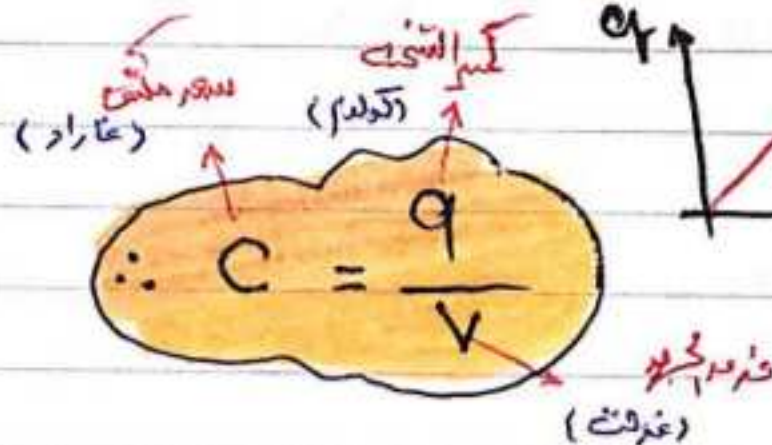 سعة مكثف
(فاراد)
كمية الشحنة
(كولوم)
q
∴ C = q / V
فرق الجهد
(فولت)